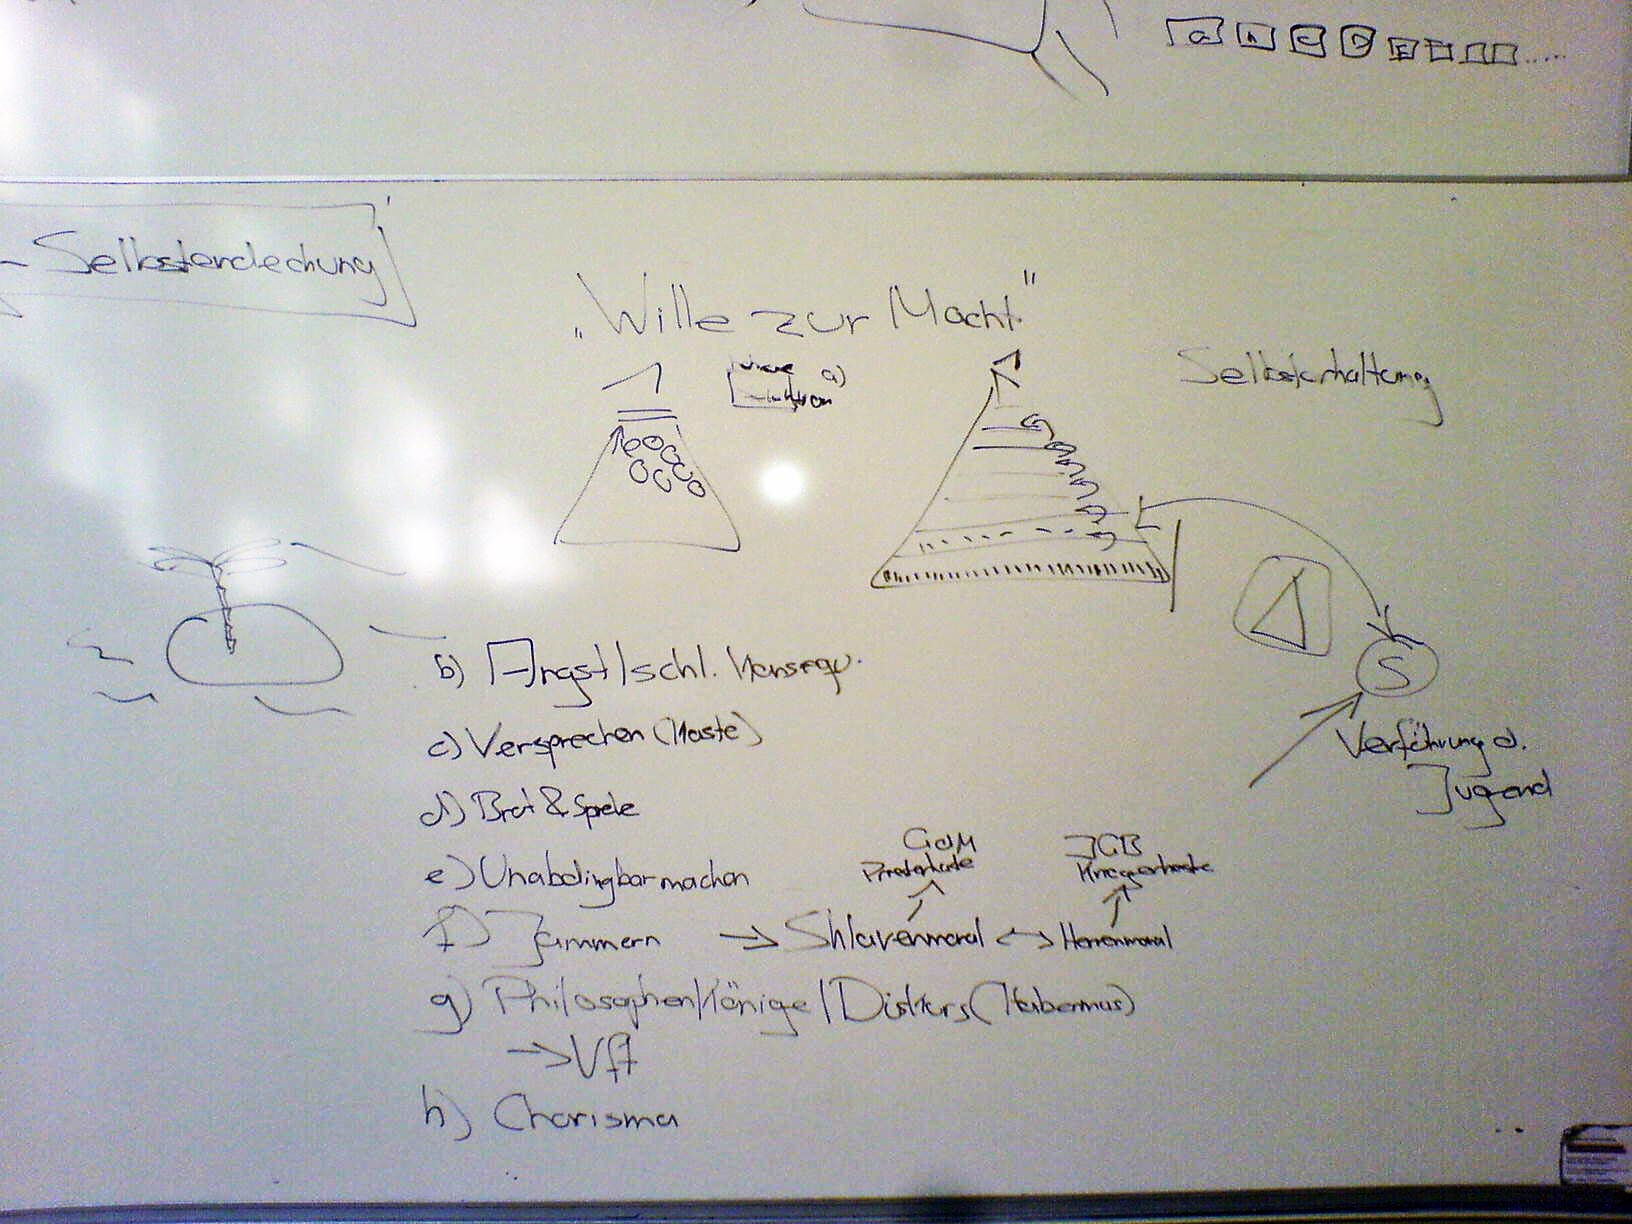 a b C D E
Selbstendeckung
„Wille zur Macht"
a)
Selbsterhaltung
b) Angst/schl. Konsequ.
S
c) Versprechen (Kaste)
Verführung d.
Jugend
d) Brot & Spiele
GdM
JGB
e) Unabdingbar machen
Priesterkaste
Kriegerkaste
f) Jammern → Sklavenmoral ↔ Herrenmoral
g) Philosophenkönige/Diskurs (Habermas)
→ Vft
h) Charisma